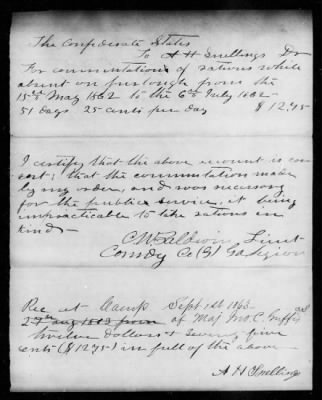 The Confederate States
To A H Snellings Dr
For commutation of rations while
absent on furlough from the
15th May 1862 to the 6th July 1862
51 days 25 cents per day $12.75
I certify that the above account is cor
rect; that the commutation made
by my order, and was necessary
for the public service, it being
impracticable to take rations in
kind
Lieut
Comdg Co (B) Ga Legion
Rec at Camp Sept 1st 1863
of Maj Jno. C.
twelve dollars & seventy five
cents ($12.75) in full of the above
A H Snellings